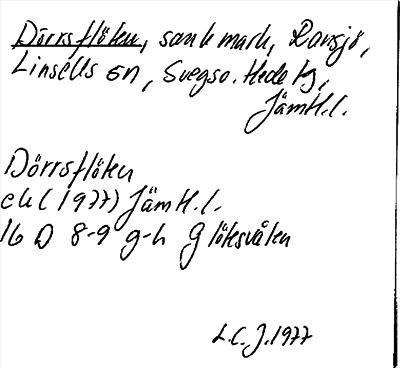 Dörrsflöten, sank mark, Ransjö,
Linsells sn, Svegs o. Hede tg,
Jämtl. l.
Dörrsflöten
ek (1977) Jämtl. l.
16 D 8-9 g-h Glötesvålen
L.C.J. 1977